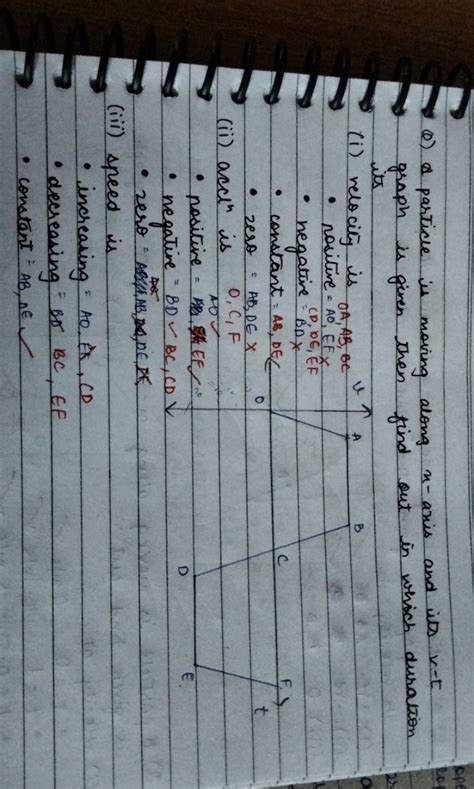 Q) A particle is moving along x-axis and its v-t
graph is given then find out in which duration
its
(i) velocity is
OA, AB, BC
• positive = AO, EF X
CD, DE, EF
• negative = BD X
• constant = AB, DE ✓
• zero = AB, DE X
O, C, F
(ii) accⁿ is
AO ✓
• positive = EF ✓
• negative = BD ✓ BC, CD
• zero = AB, DE
(iii) speed is
• increasing = AO, CD
• decreasing = BC, EF
• constant = AB, DE ✓
v
A
B
O
C
F
t
D
E